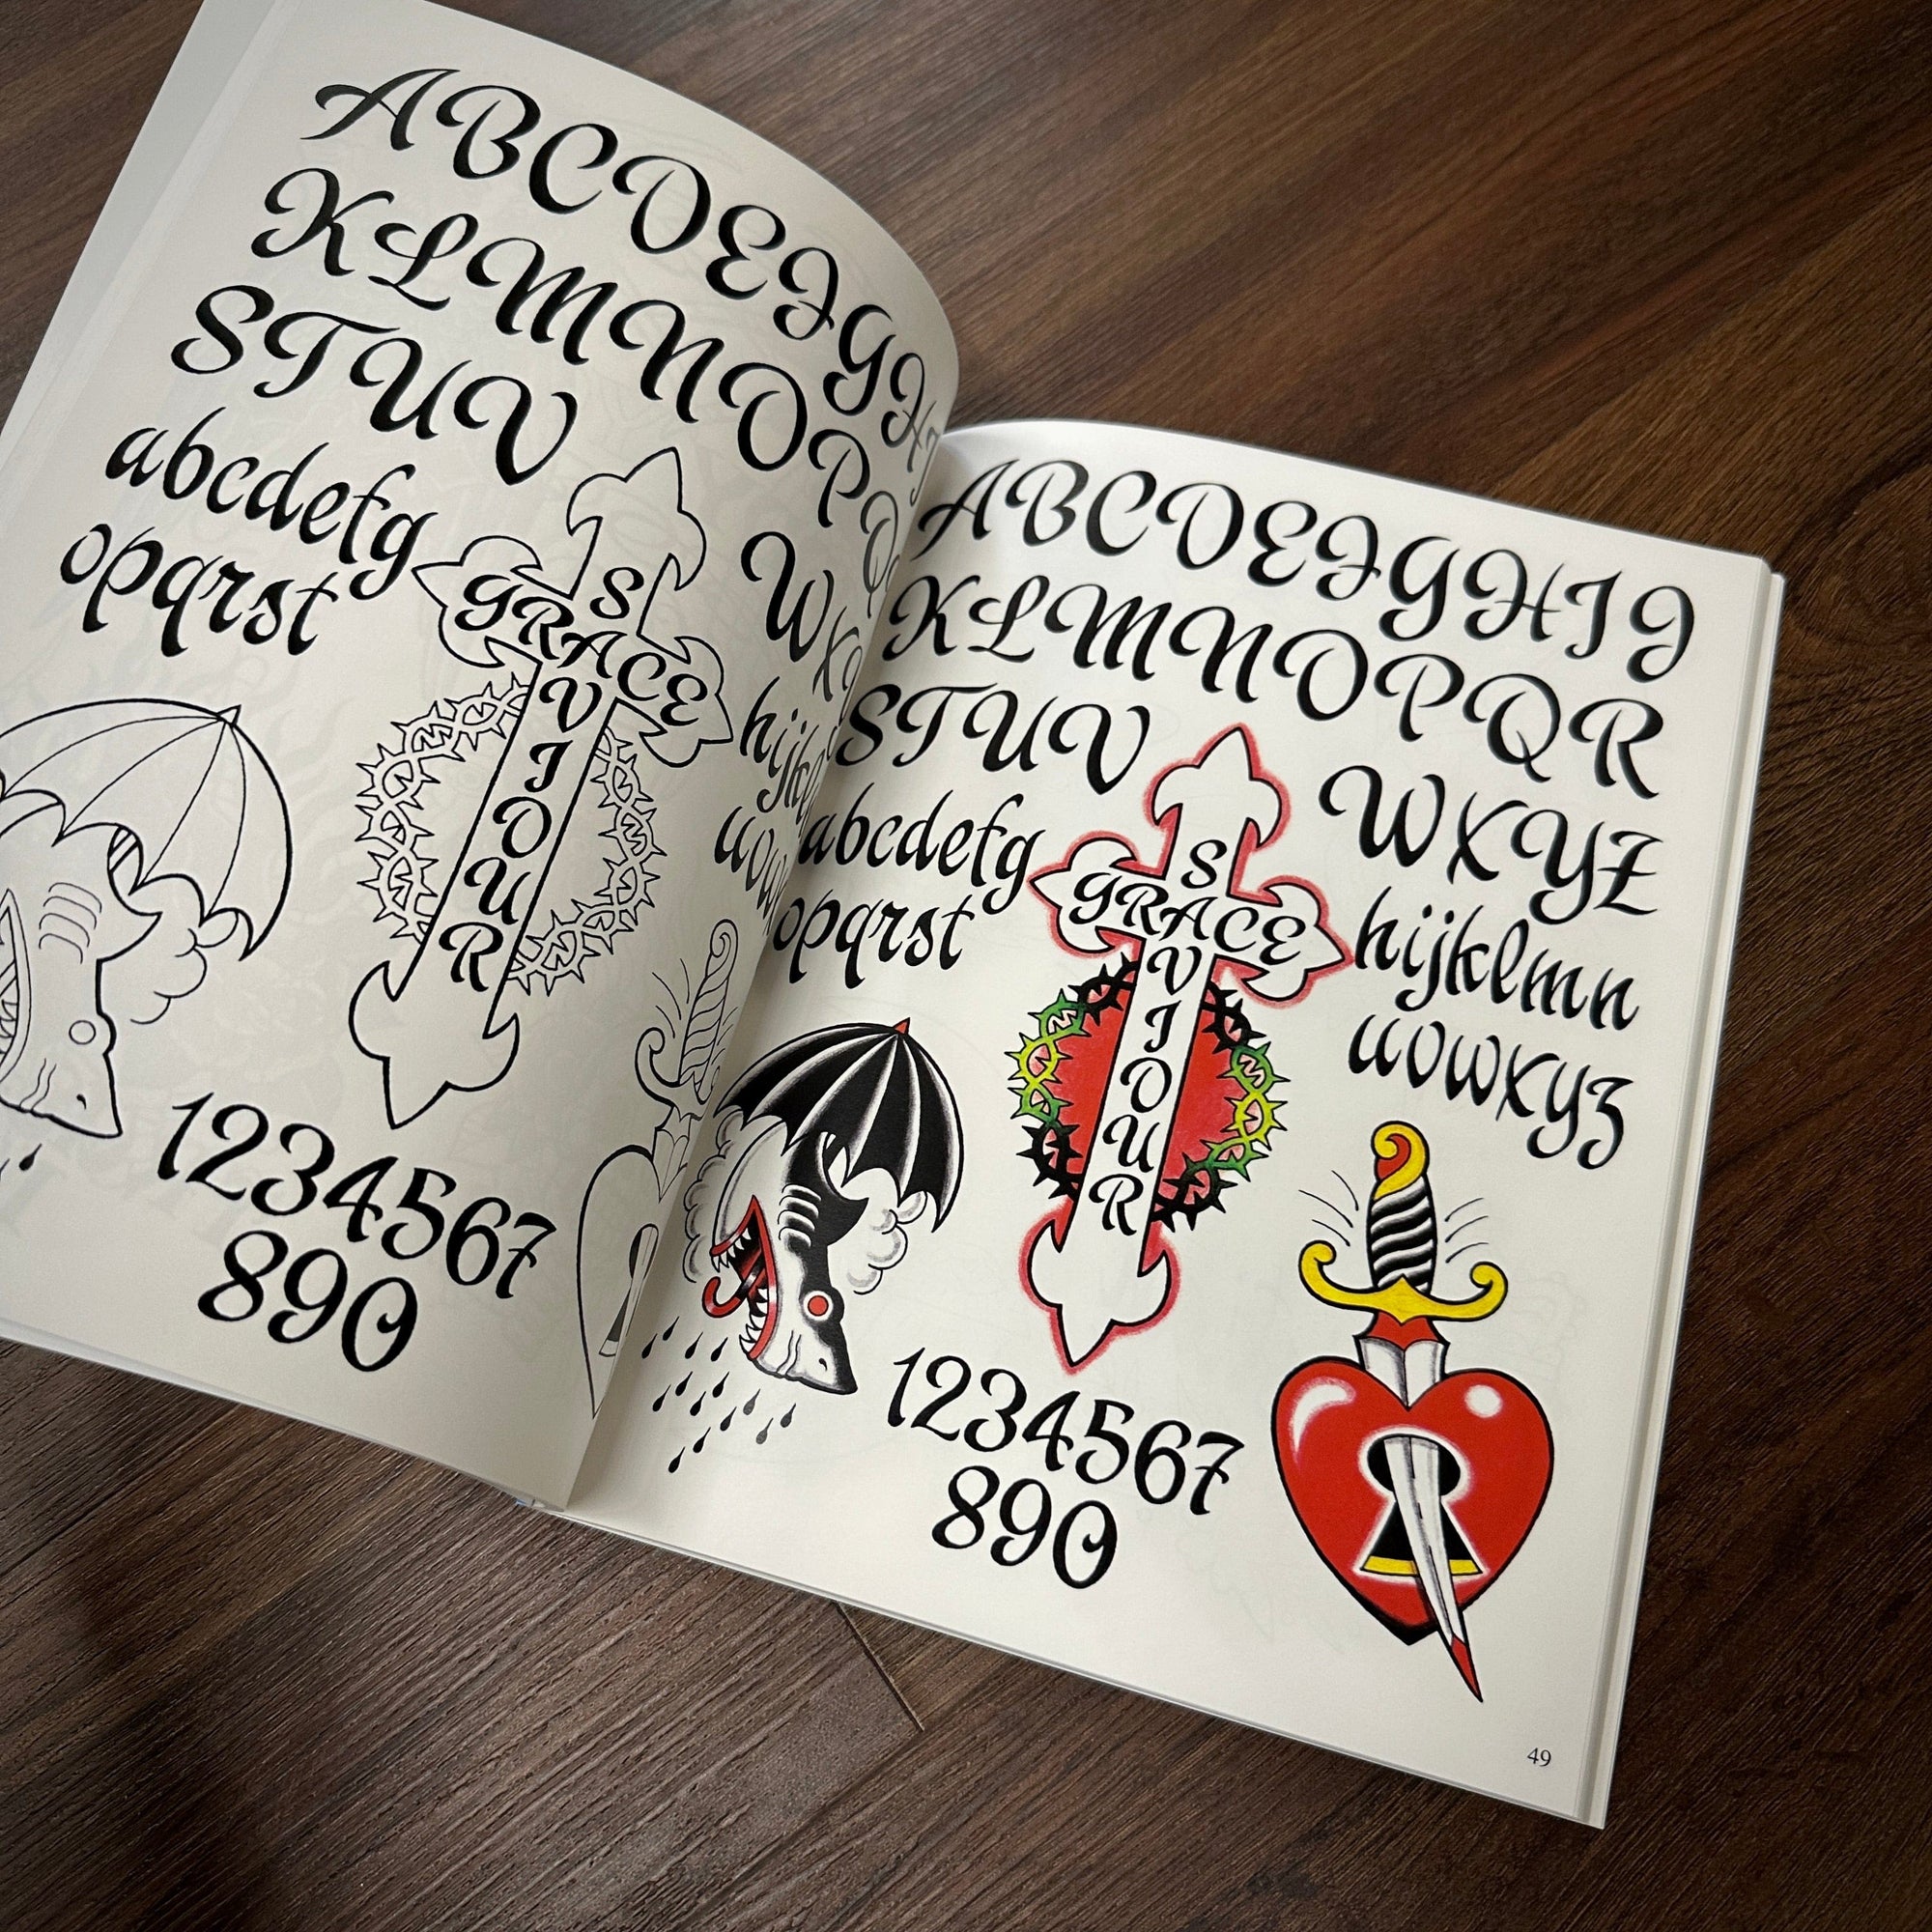 ABCDEFGH
KLMNOPQ
STUV
WX
abcdefg
hijk
opqrst
uvw
S
GRACE
V
I
O
U
R
1234567
890
ABCDEFGHIJ
KLMNOPQR
STUV
WXYZ
abcdefg
hijklmn
opqrst
uvwxyz
S
GRACE
V
I
O
U
R
1234567
890
49